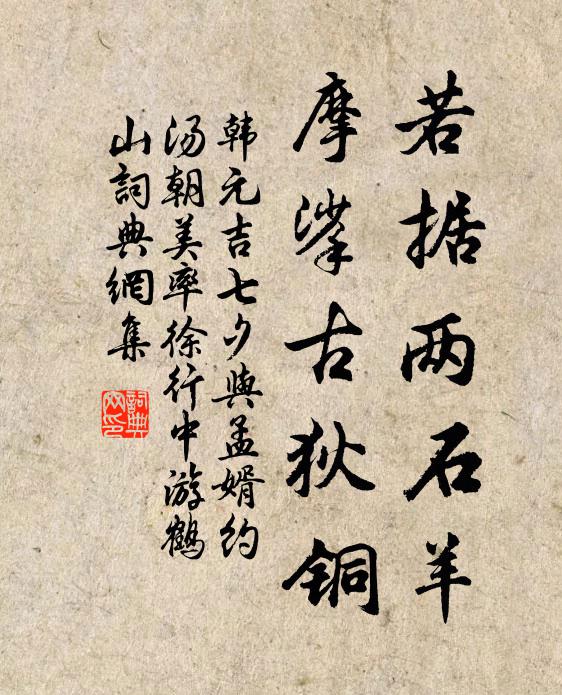 若据两石羊
摩挲古狄铜
韩元吉七夕與孟婿约
汤朝美率徐行中游鶴
山詞典網集
詞典
网印